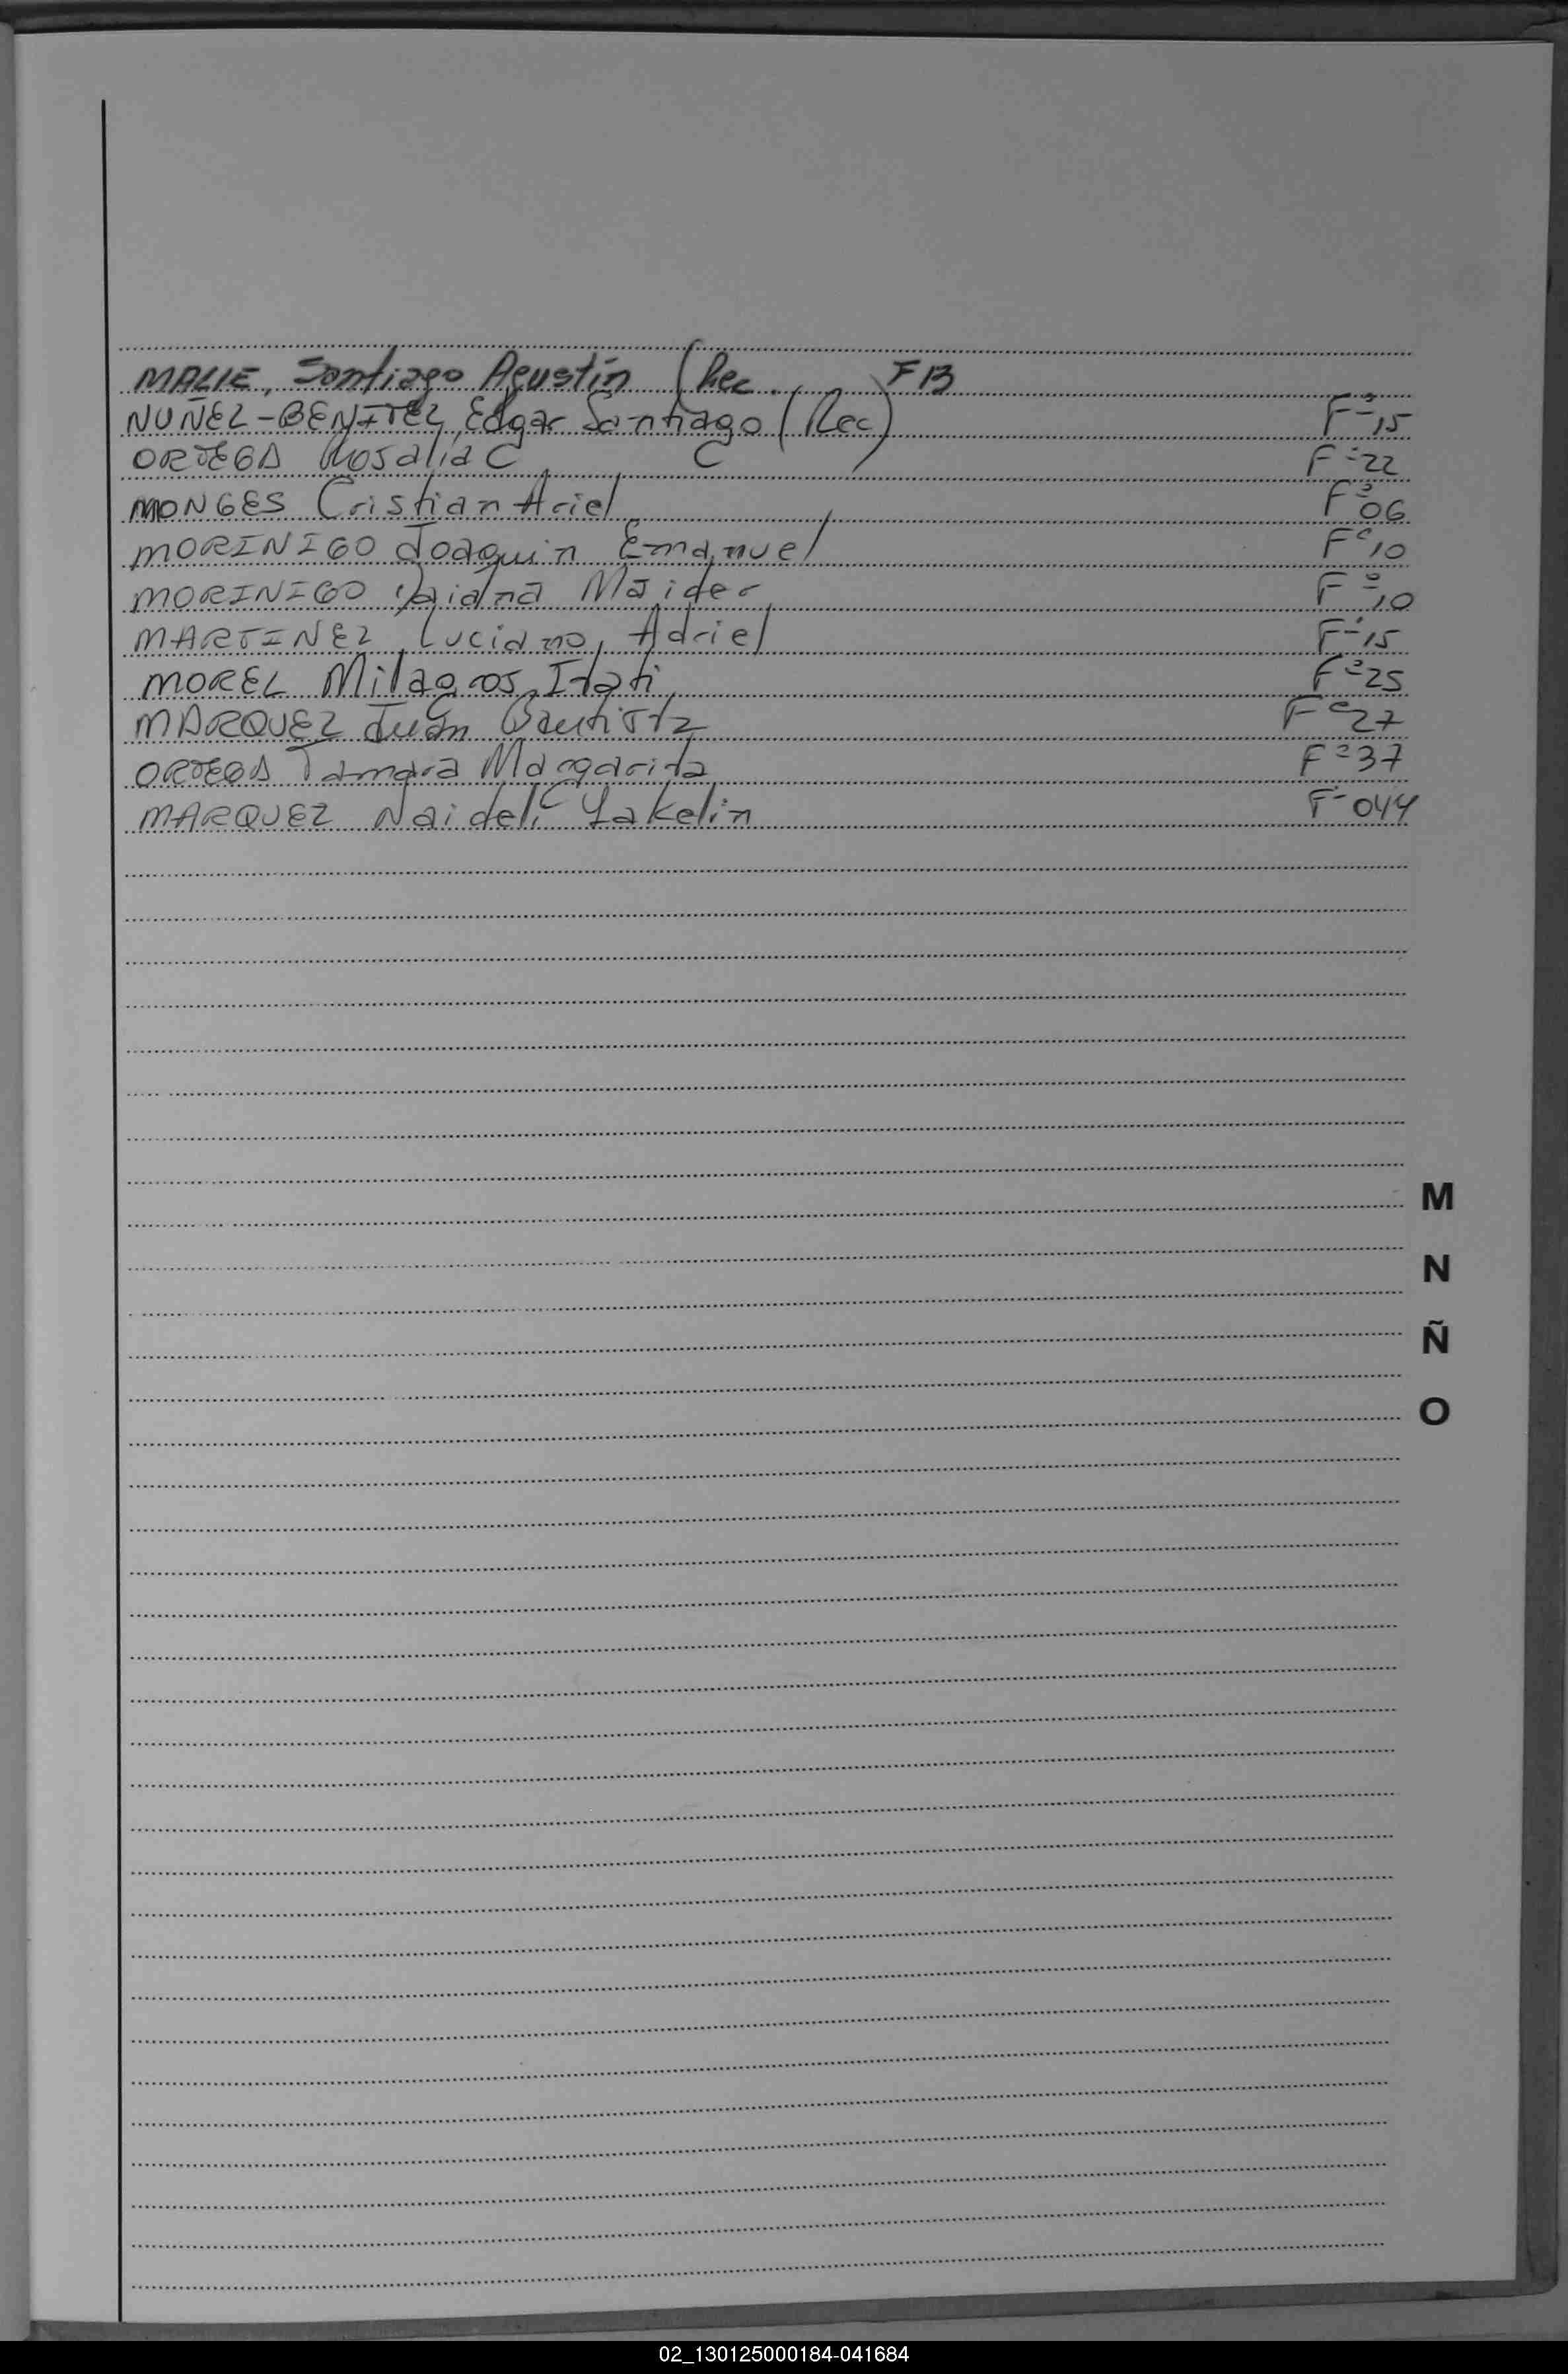 MALIE, Santiago Agustin (Rec. ) F 13
NUÑEZ-BENITEZ, Edgar Santiago (Rec) Fº 15
ORTEGA Rosalia C Fº 22
MONGES Cristian Ariel Fº 06
MORINIGO Joaquin Emanuel Fº 10
MORINIGO Daiana Maider Fº 10
MARTINEZ, Luciano, Adriel Fº 15
MOREL Milagros, Itati Fº 25
MARQUEZ Juan Bautista Fº 27
ORTEGA Tamara Margarita Fº 37
MARQUEZ Naideli Yakelin Fº 044
M
N
Ñ
O
02_130125000184-041684